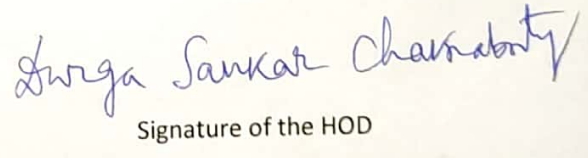 Durga Sankar Chakraborty
Signature of the HOD